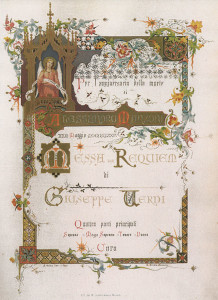 Per l'anniversario della morte
di
Alessandro Manzoni
Messa da Requiem
di
Giuseppe Verdi
Quattro parti principali
Soprano Mezzo Soprano Tenore Basso
Coro